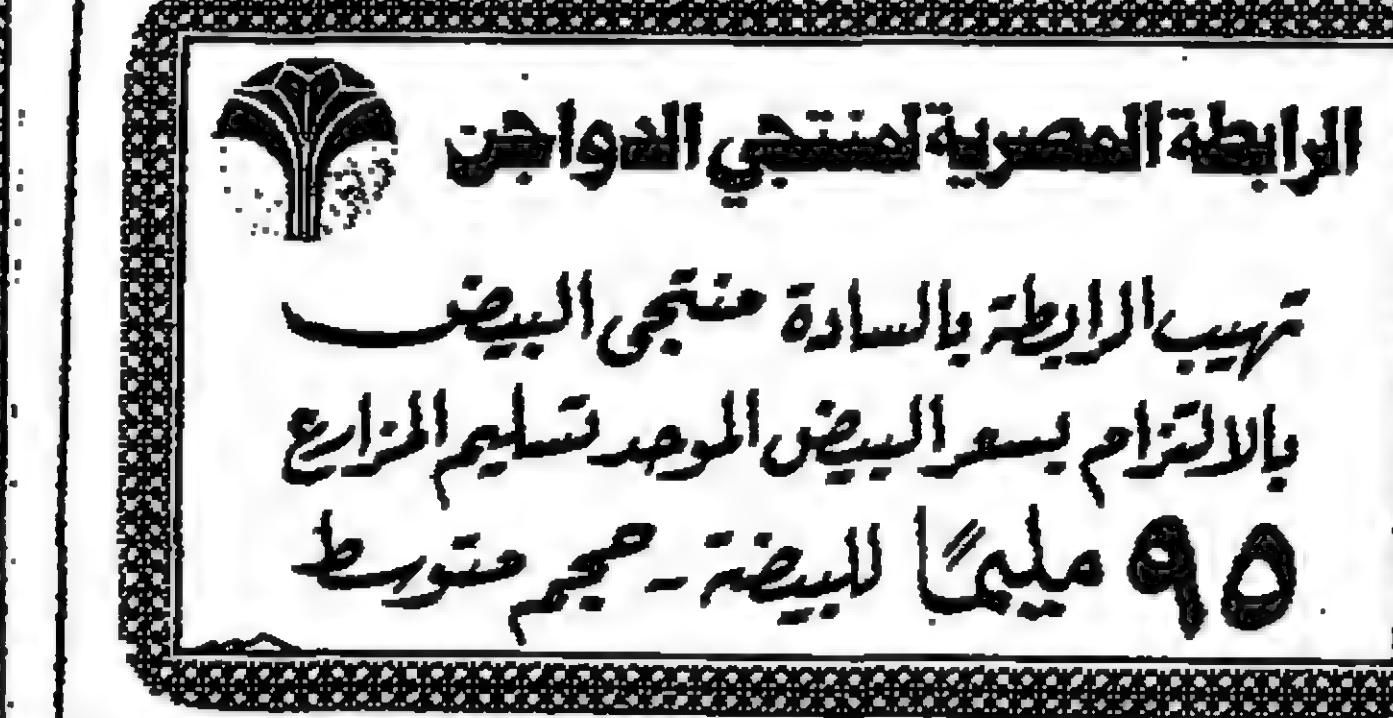 الرابطة المصرية لمنتجي الدواجن
تهيب الرابطة بالسادة منتجى البيض
بالالتزام بسعر البيض الموحد تسليم المزارع
٩٥ مليمًا للبيضة - حجم متوسط